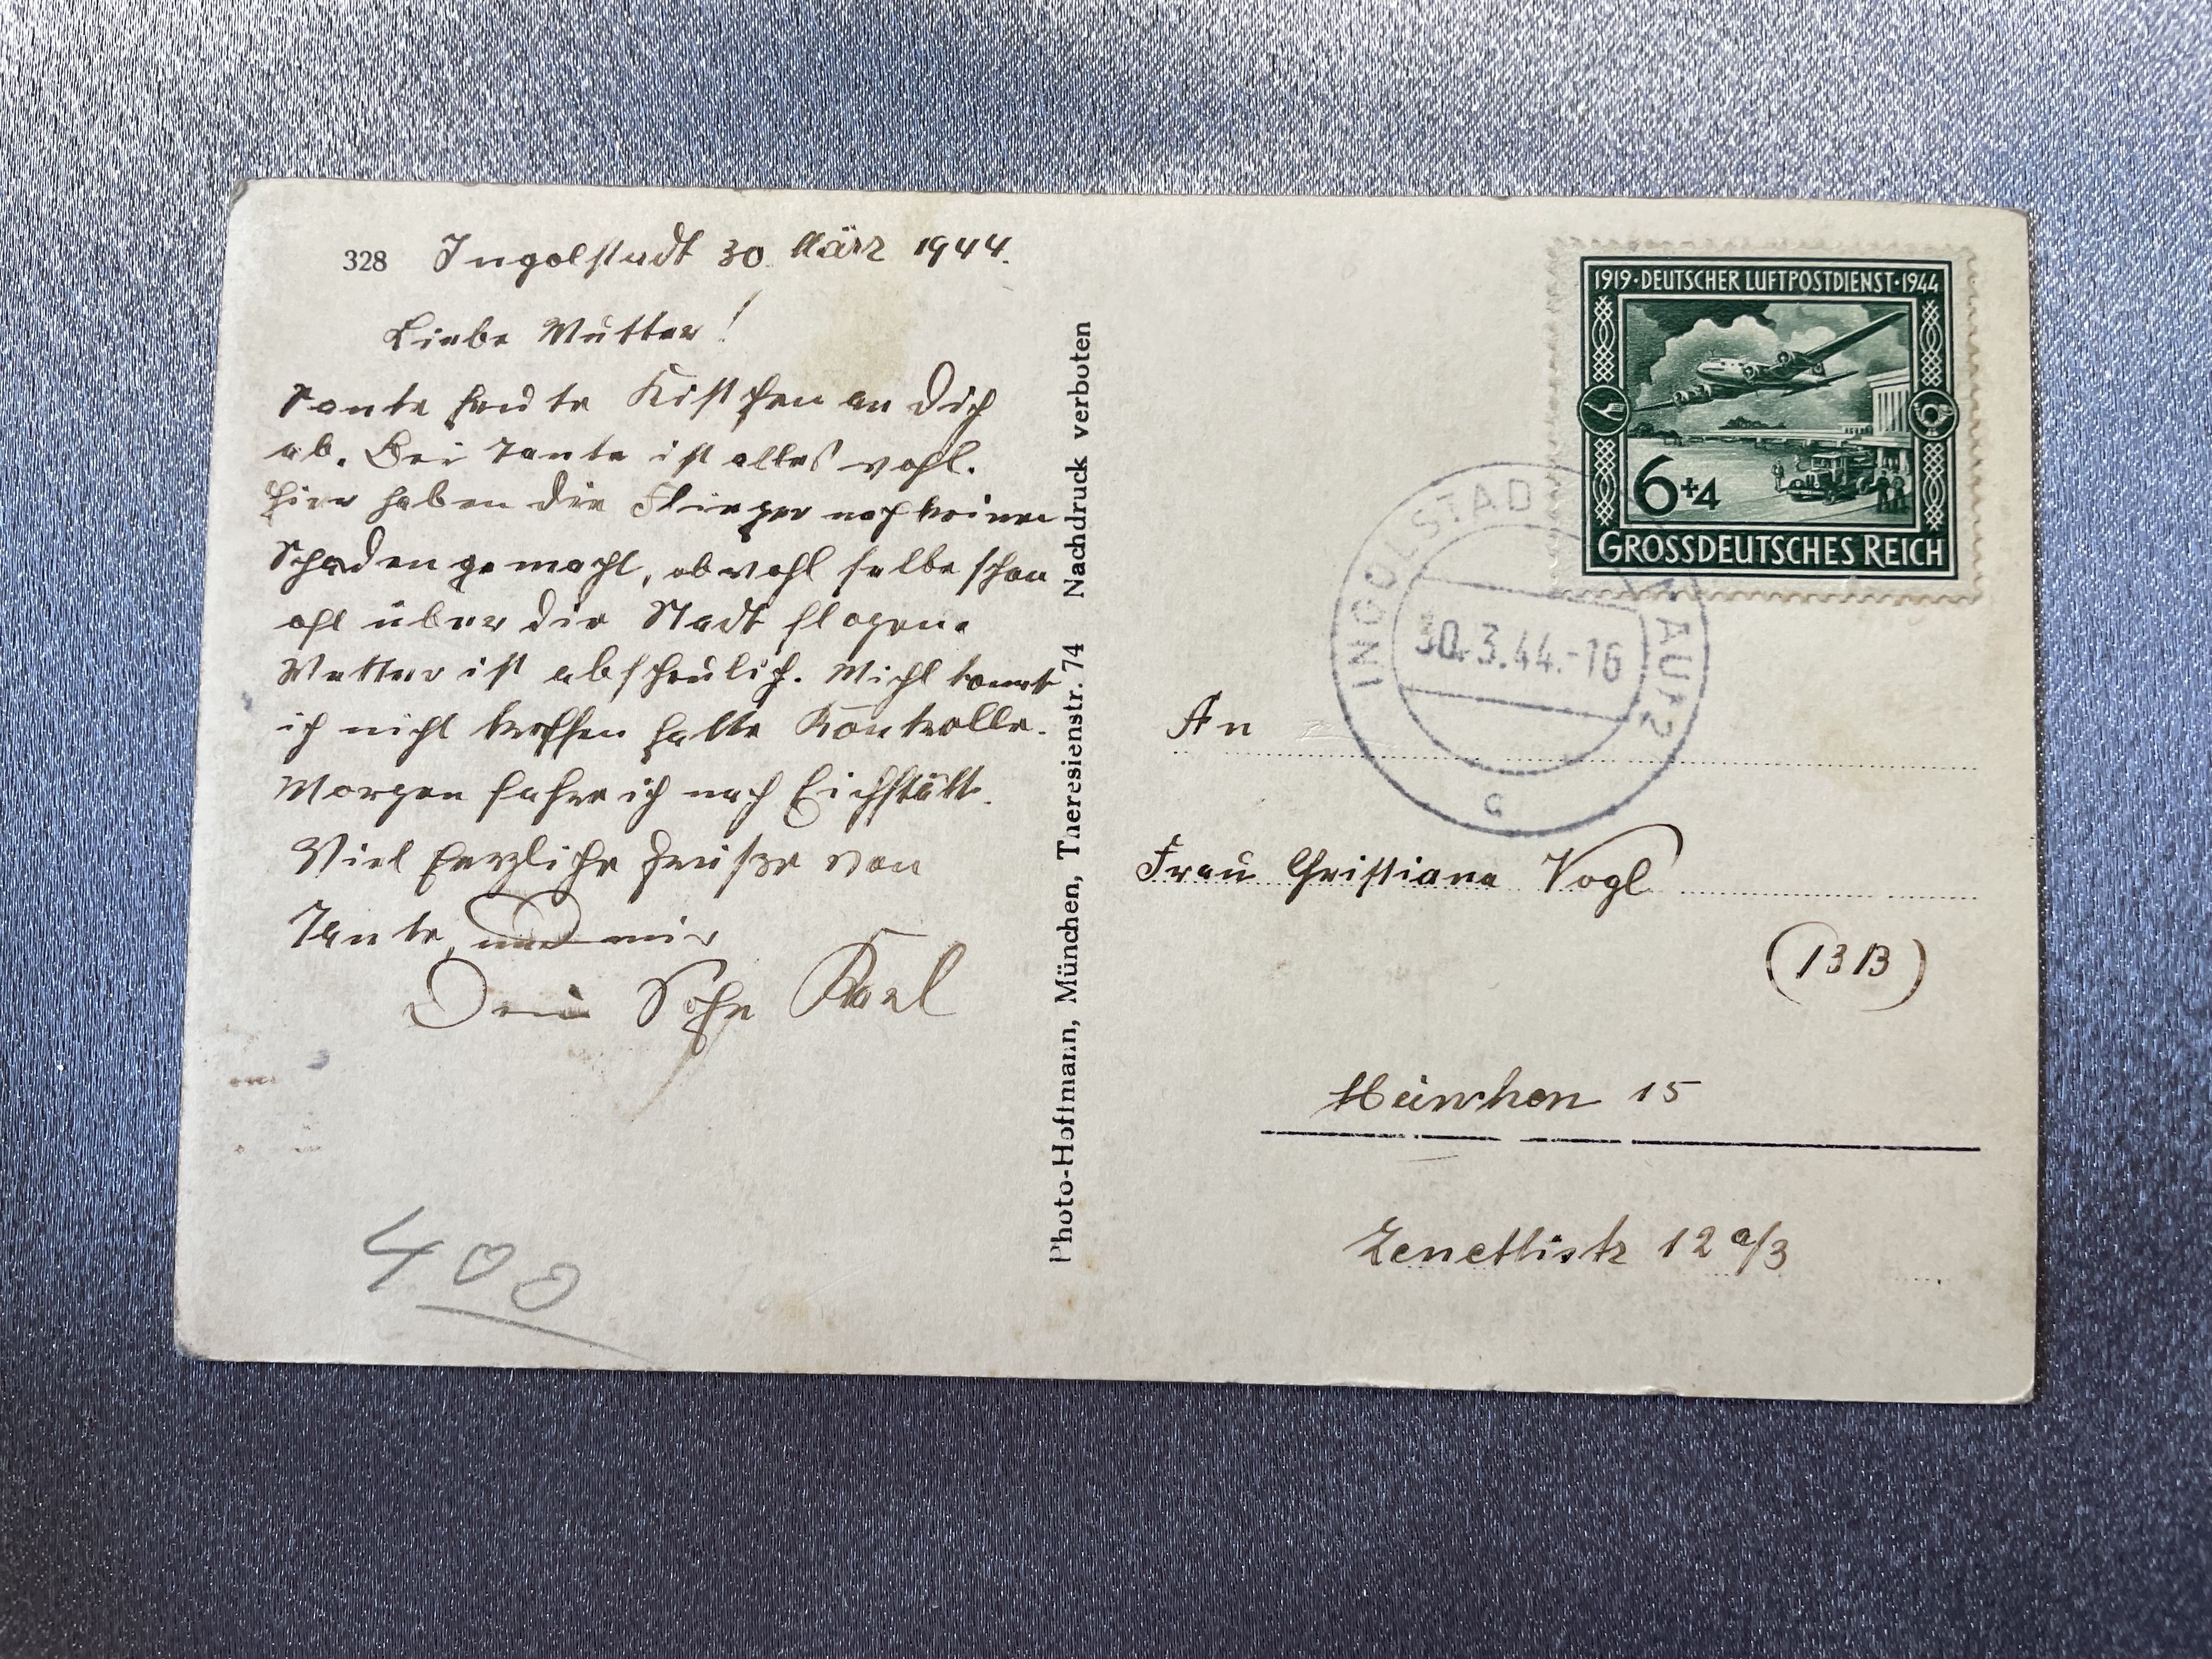 328 Ingolstadt 30. März 1944.
Liebe Mutter!
Sante heute Kistchen an Dich
ab. Bei Tante ist alles wohl.
Hier haben die Flieger noch keinen
Schaden gemacht, obwohl selbe schon
oft über die Stadt flogen.
Wetter ist abscheulich. Michl konnt
ich nicht treffen hatte Kontrolle.
Morgen fahre ich nach Eichstätt.
Viel herzliche Grüße von
Tante, und mir
Dein Sohn Karl
400
Photo-Hoffmann, München, Theresienstr. 74 Nachdruck verboten
1919·DEUTSCHER LUFTPOSTDIENST·1944
6+4
GROSSDEUTSCHES REICH
INGOLSTADT
30.3.44.-16
c
An
Frau Christiana Vogl
(13B)
München 15
Zenettistr 12 a/3